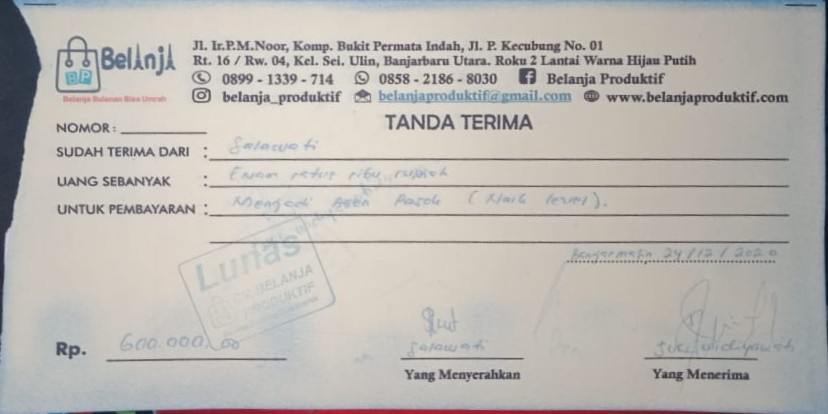 Belanja
BP
Belanja Bulanan Bisa Umrah
Jl. Ir.P.M.Noor, Komp. Bukit Permata Indah, Jl. P. Kecubung No. 01
Rt. 16 / Rw. 04, Kel. Sei. Ulin, Banjarbaru Utara. Roku 2 Lantai Warna Hijau Putih
0899 - 1339 - 714 0858 - 2186 - 8030 Belanja Produktif
belanja_produktif belanjaproduktif@gmail.com www.belanjaproduktif.com
TANDA TERIMA
NOMOR :
SUDAH TERIMA DARI : Salawati
UANG SEBANYAK : Enam ratus ribu rupiah
UNTUK PEMBAYARAN : Menjadi Agen Pasok (Naik level).
Banjarmasin 24/12/2020
Lunas
BELANJA
PRODUKTIF
Rp. 600.000,00
Salawati
Yang Menyerahkan
Yang Menerima